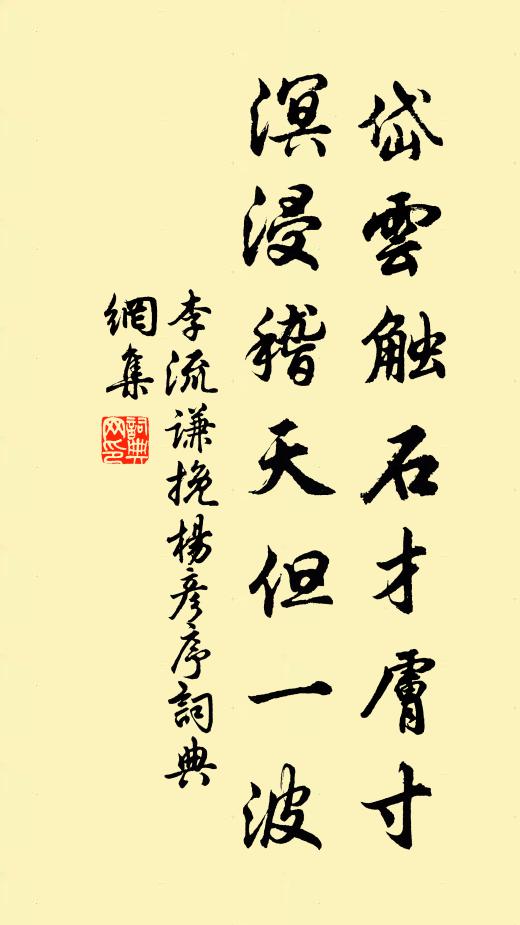 岱雲触石才膚寸
溟浸稽天但一波
李流谦挽楊彦序詞典
網集
詞典
网印